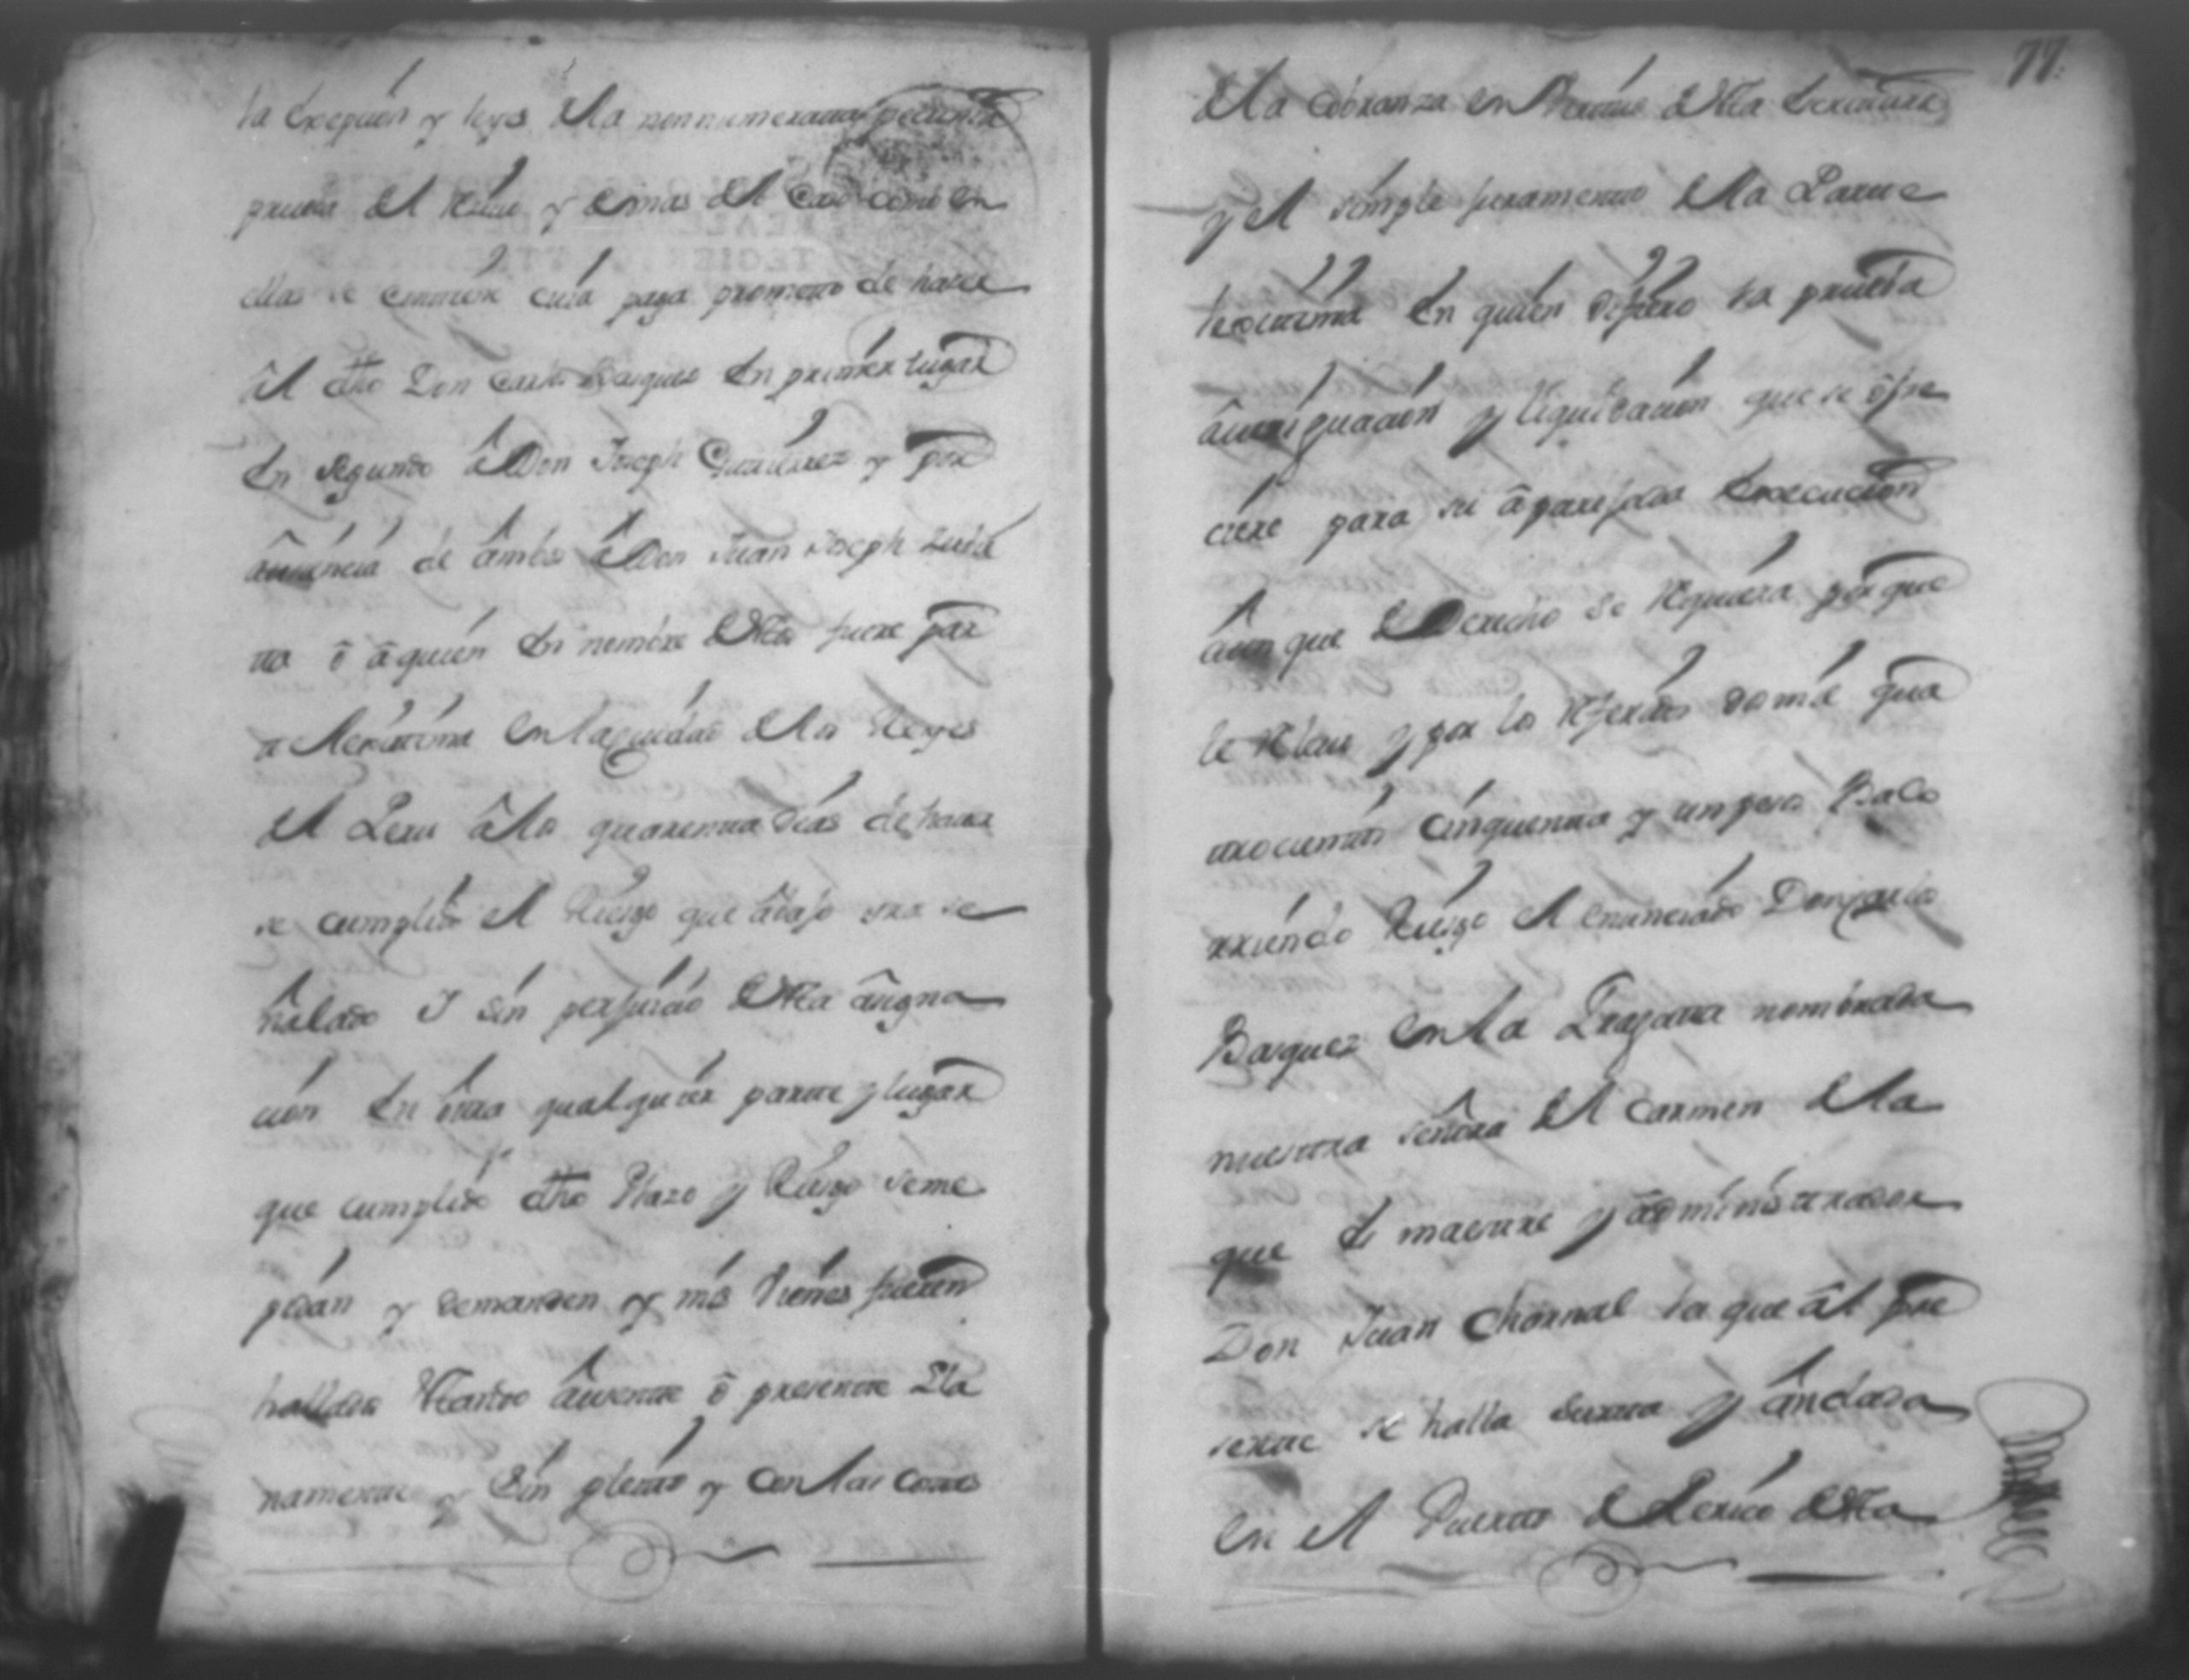 la Excepcion y leys dela nonnumerata pecunia
prueba del Resiuo y demas del caso como en
ellas se contiene cuia paga prometo de haser
al dho Don Carlos Basques en primer lugar
en segundo â Don Joseph Gutierrez y por
âusencia de âmbos â Don Juan Joseph
ro ô â quien en nombre desta fuere par
te lexitima en la ciudad de los Reyes
del Peru âlos quarenta dias de hauer
se cumplido el Riesgo que âbajo yra se
ñalado I sin perjuicio desta âsigna
cion en otra qualquier parte y lugar
que cumplido dho Plazo y Riesgo seme
pidan y demanden y mis vienes fueren
hallados estando âusente ô presente Lla
namente y Sin pleito y con las costas
77
dela cobranza en Virtud desta Escritura
y el simple juramento dela Parte
lexitima en quien difiero la prueba
âueriguacion y liquidacion que se ofre
ciere para su âparejada execucion
âun que de Derecho se Requiera por que
le Relevo y por los Referidos dos mil qua
trocientos cinquenta y un pesos Ba Co
rriendo Riesgo el enunciado Don Carlos
Basquez en la Fragata nombrada
nuestra señora del Carmen dela
que es maestre y âdministrador
Don Juan Chornal la que âl pre
sente se halla surta y ânclada
en el Puerto de Perico desta